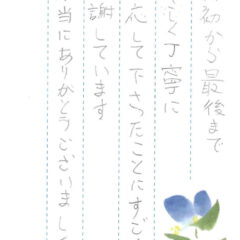 初から最後まで
しく丁寧に
応して下さったことにすご
謝しています
当にありがとうございまし